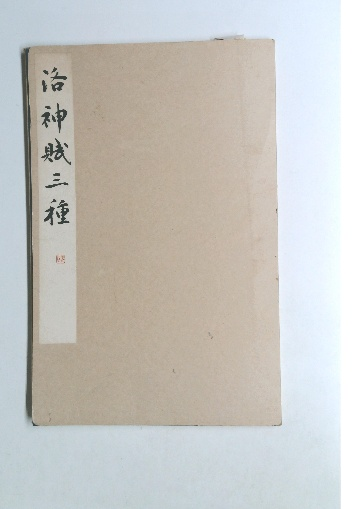 洛神賦三種